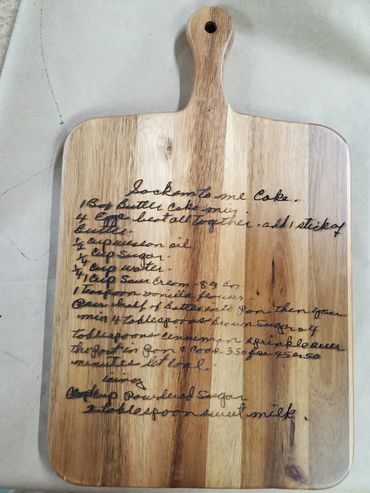 Sockem to me Cake.
1 Box Butter Cake mix.
4 Eggs beat all together. add 1 stick of
butter.
1/2 cup wesson oil
1/4 cup Sugar.
1/4 cup water.
1 cup Sour Cream 8 oz
1 teaspoon vanilla flavor
Pour half of batter into Pan then you
mix 4 tablespoons brown Sugar & 4
tablespoons cinnamon sprinkle over
the Pan & Cook 350 for 45 or 50
minutes let cool.
icing
cup Powdered Sugar
2 tablespoon sweet milk.